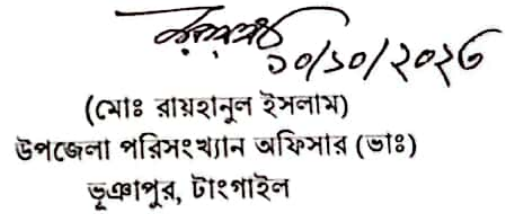 ১০/১০/২০২৩
(মোঃ রায়হানুল ইসলাম)
উপজেলা পরিসংখ্যান অফিসার (ভাঃ)
ভূঞাপুর, টাংগাইল